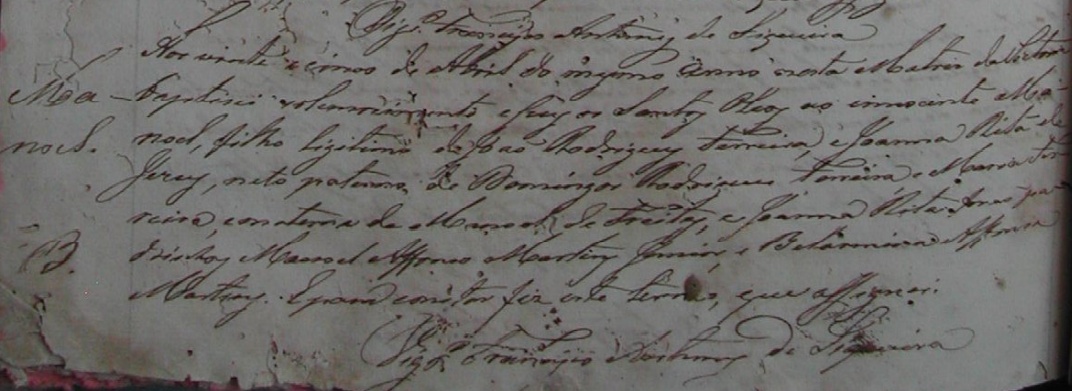 Vigº Francisco Antunes de Siqueira
Aos vinte e cinco de Abril do mesmo anno nesta Matriz da Victoria
Ma- baptisei solemnemente e puz os Santos Oleos ao innocente Ma-
noel. noel, filho ligitimo de João Rodrigues Ferreira, e Joanna Rita de
Jesus, neto paterno de Domingos Rodrigues Ferreira e Maria Fer-
reira, e materno de Manoel de Freitas, e Joanna Rita. Forão pa-
B. drinhos Manoel Affonso Martins Junior, e Belarmina Affonso
Martins. E para constar fiz este termo, que assignei.
Vigº Francisco Antunes de Siqueira